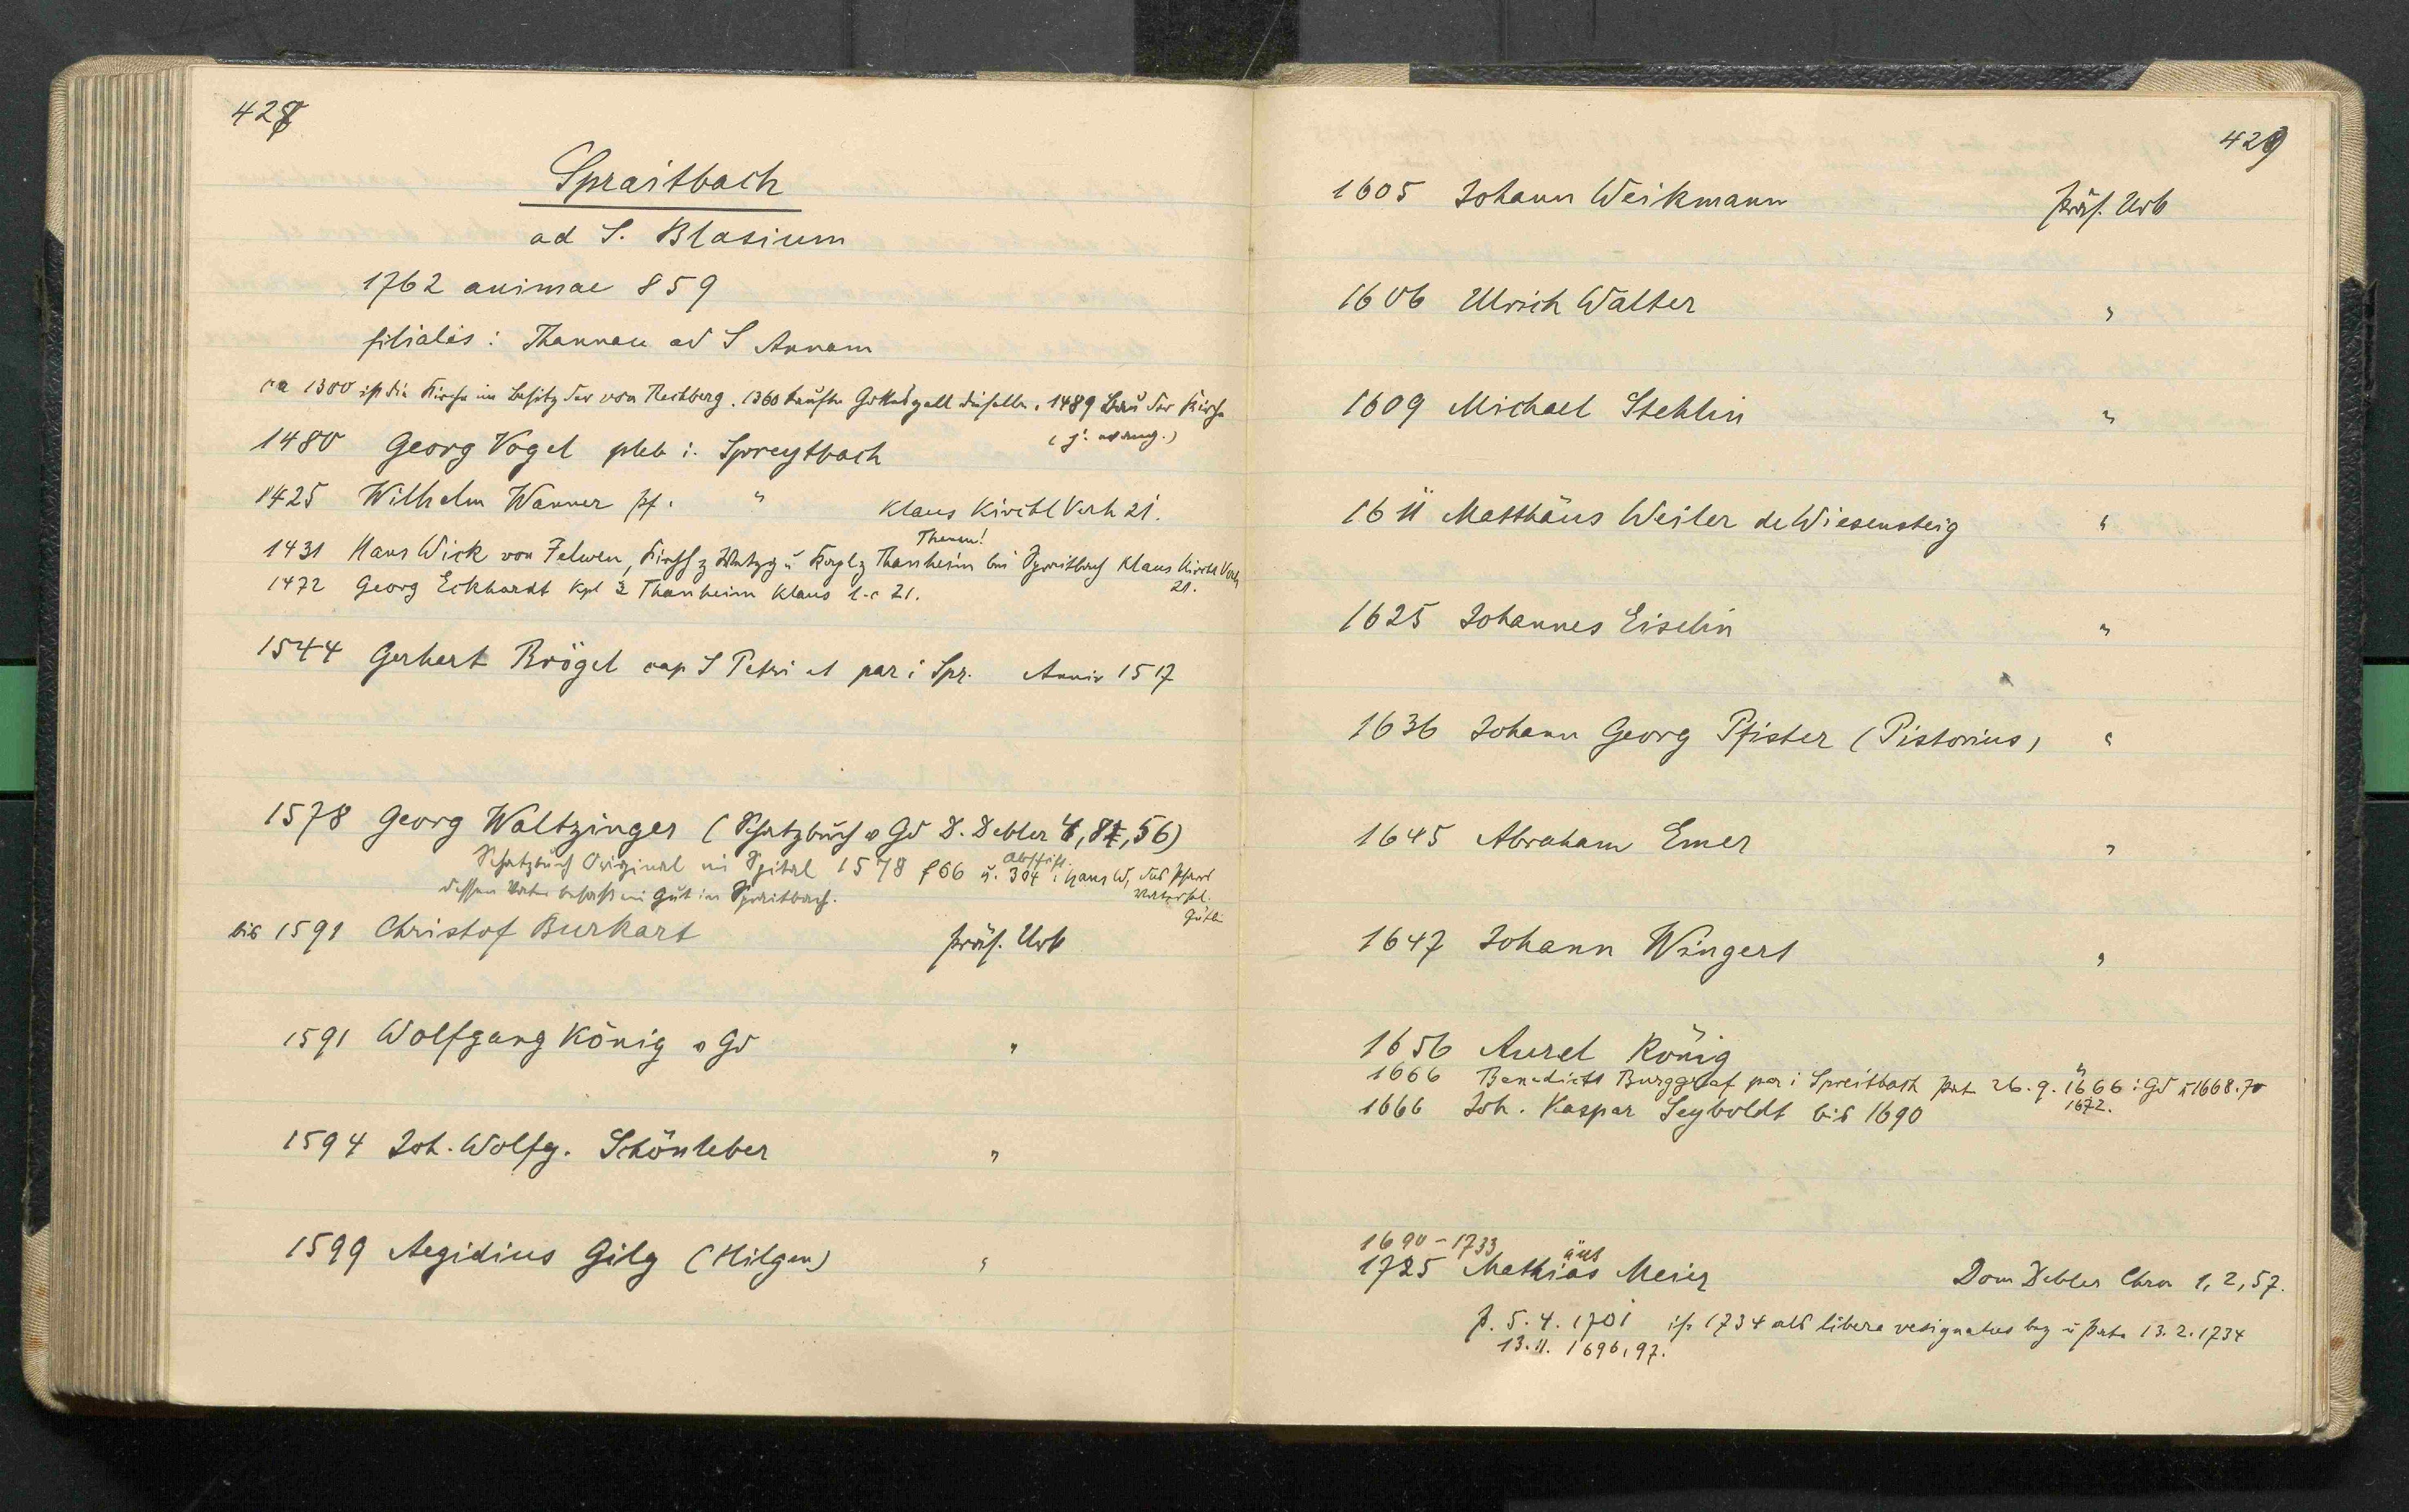 428
Spraitbach
ad S. Blasium
1762 animae 859
filialis: Thannau ad S Annam
ca 1300 ist die Kirche im Besitz der von Rechberg. 1360 kaufte Gotteszell dieselbe. 1489 Bau der Kirche
1480 Georg Vogel pleb i. Spreytbach
1425 Wilhelm Wanner pf. " Klaus Kirchl Verh 21.
1431 Hans Wick von Felwen, Kirchh z u Kaplz Thanheim bei Spraitbach Klaus Kirchl Verh 21.
1472 Georg Eckhardt Kpl z Thanheim Klaus l.c 21.
1544 Gerhert Brögel cap S Petri et par i Spr. Anniv 1517
1578 Georg Waltzinger (Schatzbuch v Gd D. Debler 4, 81, 56)
Schatzbuch Original im Spital 1578 f 66 u. 304 i Hans W,
dessen Vater besass ein Gut in Spraitbach.
bis 1591 Christof Burkart Präs. Urb
1591 Wolfgang König v Gd "
1594 Joh. Wolfg. Schönleber "
1599 Aegidius Gilg (Hilgen) "
429
1605 Johann Weikmann Präs. Urb
1606 Ulrich Walter "
1609 Michael Stehlin "
1611 Matthäus Weiler de Wiesensteig "
1625 Johannes Eiselin "
1636 Johann Georg Pfister (Pistorius) "
1645 Abraham Emer "
1647 Johann Wingert "
1656 Aurel König "
1666 Benedickt Burggraf par i Spreitbach pat 26.9.1666 i Gd u 1668.70
1672.
1666 Joh. Kaspar Seyboldt bis 1690
1690-1733
1725 Mathias Meier Dom Debler Chron 1, 2, 57.
p. 5.4.1701 ist 1734 als libere resignatus bez u pate 13.2.1734
13.11. 1696, 97.